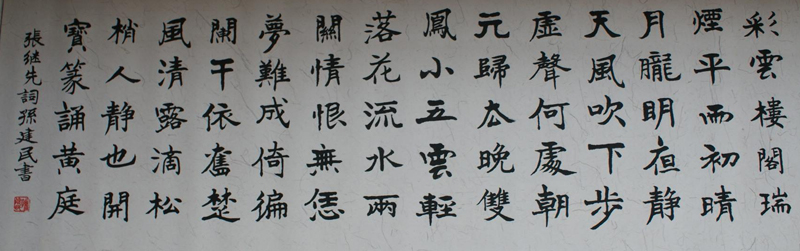 彩雲樓閣瑞
煙平而初晴
月朧明夜静
天風吹下步
虛聲何處朝
元歸厺晚雙
鳳小五雲輕
落花流水兩
關情恨無恁
夢難成倚徧
闌干依舊楚
風清露滴松
梢人静也開
寶篆誦黄庭
張继先詞孫建民書